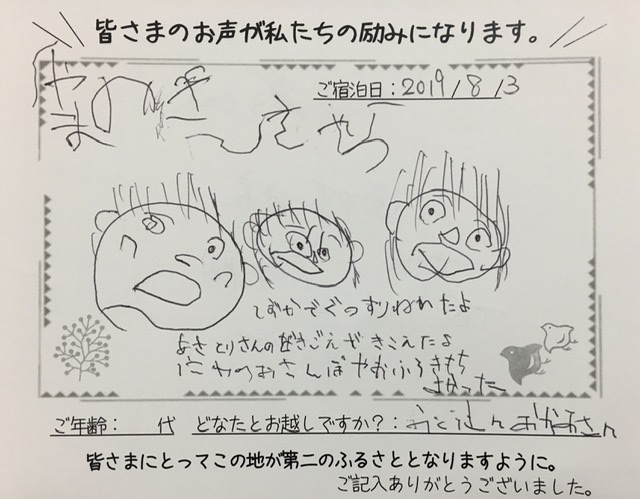 皆さまのお声が私たちの励みになります。
ご宿泊日：2019/8/3
しずかでぐっすりねれたよ
あさとりさんのなきごえがきこえたよ
にわのおさんぽやおふろきもち
よかったー
ご年齢：　代　どなたとお越しですか？：おとうさん おかあさん
皆さまにとってこの地が第二のふるさととなりますように。
ご記入ありがとうございました。